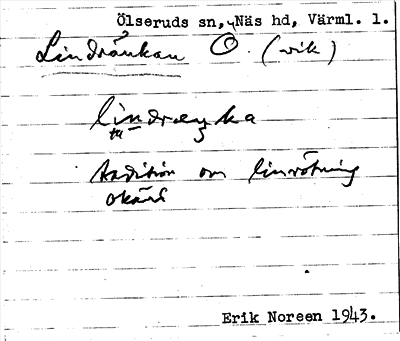 Ölseruds sn, Näs hd, Värml. l.
Lindränkan O. (vik)
lindræŋka
tradition om linrötning
okänd
Erik Noreen 1943.